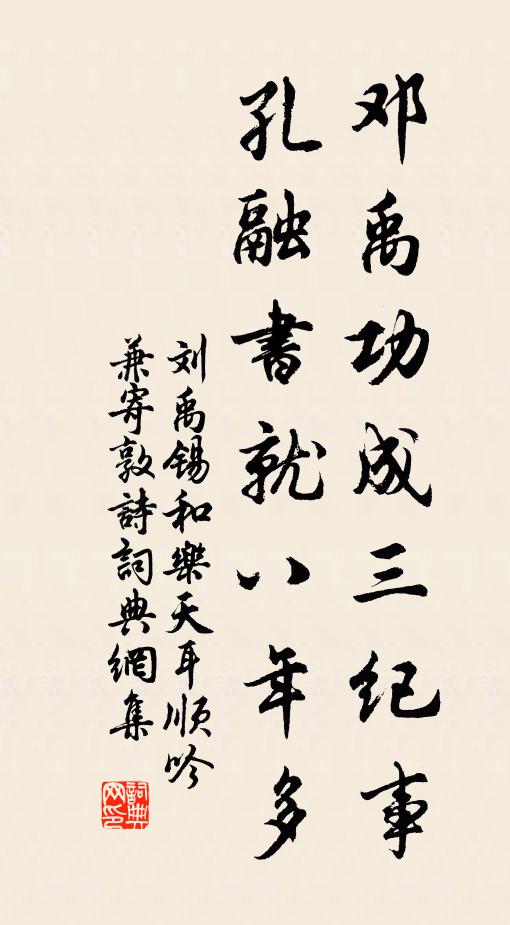 邓禹功成三纪事
孔融書就八年多
刘禹锡和樂天耳顺吟
兼寄敦詩詞典網集
詞典网印